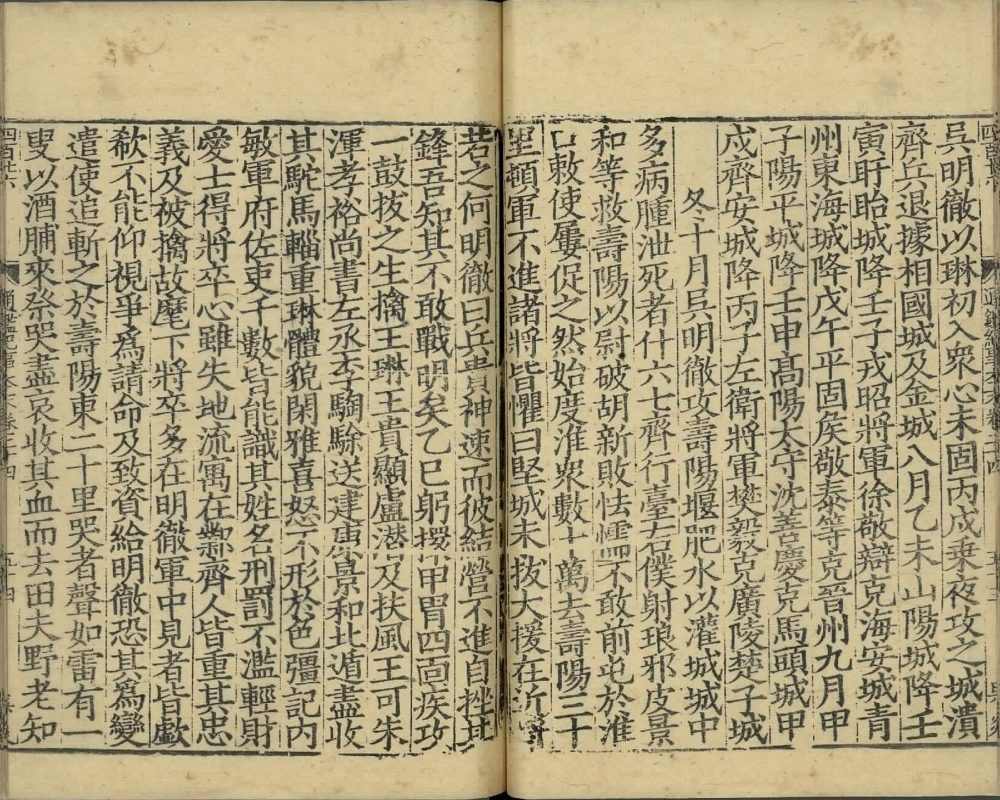 吳明徹以琳初入衆心未固丙戌乗夜攻之城潰
齊兵退據相國城及金城八月乙未山陽城降壬
寅盱眙城降壬子戎昭將軍徐敬辯克海安城青
州東海城降戊午平固矦敬泰等克晉州九月甲
子陽平城降壬申髙陽太守沈善慶克馬頭城甲
戍齊安城降丙子左衛將軍樊毅克廣陵楚子城
冬十月吳明徹攻壽陽堰肥水以灌城城中
多病腫泄死者什六七齊行臺右僕射琅邪皮景
和等救壽陽以尉破胡新敗怯懦不敢前屯於淮
口敕使屢促之然始度淮衆數十萬去壽陽三十
里頓軍不進諸將皆懼曰堅城未拔大援在近將
若之何明徹曰兵貴神速而彼結營不進自挫其
鋒吾知其不敢戰明矣乙巳躬擐甲胄四面疾攻
一鼓拔之生擒王琳王貴顯盧潜及扶風王可朱
渾孝裕尚書左丞李騊駼送建康景和北遁盡收
其駝馬輜重琳體貌閑雅喜怒不形於色彊記内
敏軍府佐吏千數皆能識其姓名刑罰不濫輕財
愛士得將卒心雖失地流寓在鄴齊人皆重其忠
義及被擒故麾下將卒多在明徹軍中見者皆歔
欷不能仰視爭爲請命及致資給明徹恐其爲變
遣使追斬之於壽陽東二十里哭者聲如雷有一
叟以酒脯來祭哭盡哀收其血而去田夫野老知
四百廿六